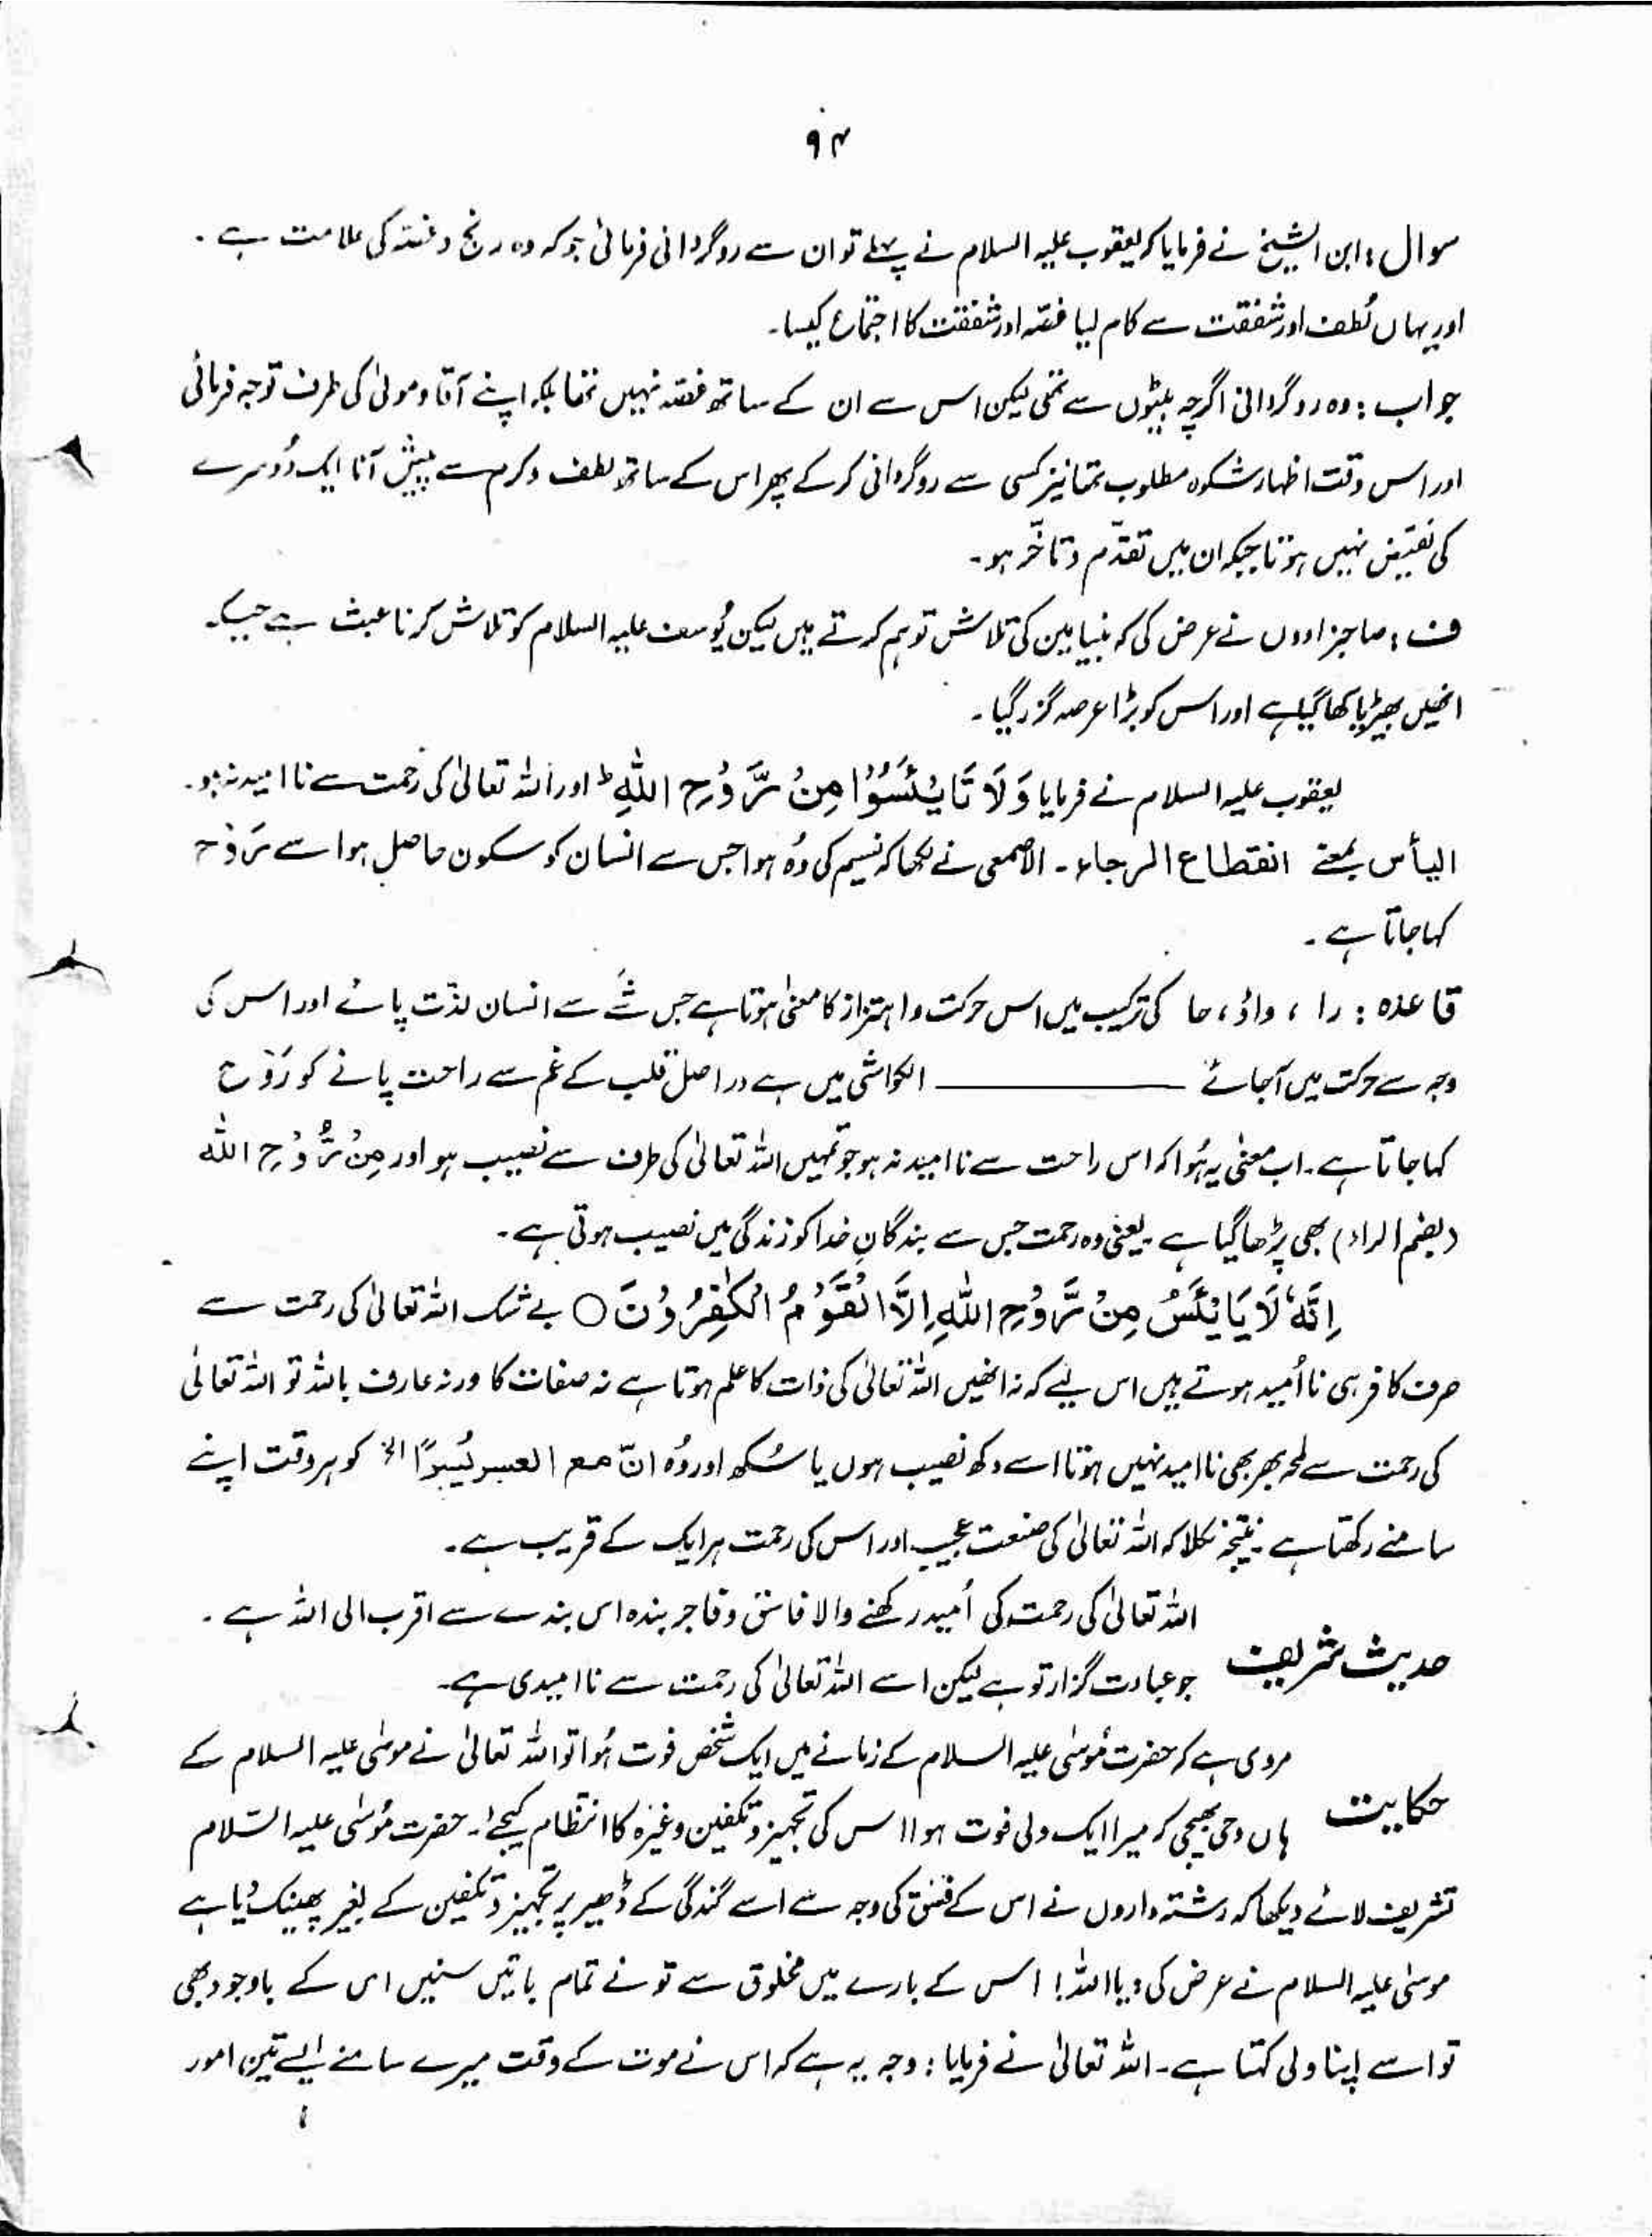 ۹۴
سوال : ابن الشیخ نے فرمایا کہ یعقوب علیہ السلام نے پہلے تو ان سے روگردانی فرمائی جو کہ وہ رنج و غصہ کی علامت ہے ۔
اور یہاں لُطف اور شفقت سے کام لیا غصّہ اور شفقت کا اجتماع کیسا۔
جواب : وہ روگردانی اگرچہ بیٹوں سے تھی لیکن اس سے ان کے ساتھ غصّہ نہیں تھا بلکہ اپنے آقا و مولیٰ کی طرف توجہ فرمائی
اور اس وقت اظہارِ شکوہ مطلوب تھا نیز کسی سے روگردانی کر کے پھر اس کے ساتھ لطف و کرم سے پیش آنا ایک دُوسرے
کی نقیض نہیں ہوتا جبکہ ان میں تقدّم و تاخّر ہو۔
ف : صاجزادوں نے عرض کی کہ بنیامین کی تلاش تو ہم کرتے ہیں لیکن یُوسف علیہ السلام کو تلاش کرنا عبث ہے جبکہ
انھیں بھیڑیا کھا گیا ہے اور اس کو بڑا عرصہ گزر گیا ۔
یعقوب علیہ السلام نے فرمایا وَلَا تَایْئَسُوْا مِنْ رَّوْحِ اللّٰہِ ؕ اور اللہ تعالیٰ کی رحمت سے ناامید نہ ہو۔
الیأس بمعنے انقطاع الرجاء ۔ الاصمعی نے لکھا کہ نسیم کی وُہ ہوا جس سے انسان کو سکون حاصل ہو اسے رَوْح
کہا جاتا ہے ۔
قاعدہ : را ، واؤ ، حا کی ترکیب میں اس حرکت و اہتزاز کا معنیٰ ہوتا ہے جس شے سے انسان لذّت پائے اور اس کی
وجہ سے حرکت میں آجائے ـــــــــ الکواشی میں ہے دراصل قلب کے غم سے راحت پانے کو رَوْح
کہا جاتا ہے ۔ اب معنیٰ یہ ہُوا کہ اس راحت سے ناامید نہ ہو جو تمہیں اللہ تعالیٰ کی طرف سے نصیب ہو اور مِنْ رُّوْحِ اللّٰہ
(بضم الراء) بھی پڑھا گیا ہے یعنی وہ رحمت جس سے بندگانِ خدا کو زندگی میں نصیب ہوتی ہے ۔
اِنَّہٗ لَا یَایْئَسُ مِنْ رَّوْحِ اللّٰہِ اِلَّا الْقَوْمُ الْکٰفِرُوْنَ ○ بے شک اللہ تعالیٰ کی رحمت سے
صرف کافر ہی نااُمید ہوتے ہیں اس لیے کہ نہ انھیں اللہ تعالیٰ کی ذات کا علم ہوتا ہے نہ صفات کا ورنہ عارف باللہ تو اللہ تعالیٰ
کی رحمت سے لمحہ بھر بھی ناامید نہیں ہوتا اسے دکھ نصیب ہوں یا سُکھ اور وُہ انّ مع العسر یُسرًا الخ کو ہر وقت اپنے
سامنے رکھتا ہے نتیجہ نکلا کہ اللہ تعالیٰ کی صنعت عجیب اور اس کی رحمت ہر ایک کے قریب ہے ۔
حدیث شریف اللہ تعالیٰ کی رحمت کی اُمید رکھنے والا فاسق و فاجر بندہ اس بندے سے اقرب الی اللہ ہے ۔
جو عبادت گزار تو ہے لیکن اسے اللہ تعالیٰ کی رحمت سے ناامیدی ہے ۔
حکایت مروی ہے کہ حضرت مُوسٰی علیہ السلام کے زمانے میں ایک شخص فوت ہُوا تو اللہ تعالیٰ نے موسٰی علیہ السلام کے
ہاں وحی بھیجی کہ میرا ایک ولی فوت ہوا اس کی تجہیز و تکفین وغیرہ کا انتظام کیجئے ۔ حضرت مُوسٰی علیہ السّلام
تشریف لائے دیکھا کہ رشتہ داروں نے اس کے فسق کی وجہ سے اسے گندگی کے ڈھیر پر تجہیز و تکفین کے بغیر پھینک دیا ہے
موسٰی علیہ السلام نے عرض کی : یا اللہ ! اس کے بارے میں مخلوق سے تو نے تمام باتیں سنیں اس کے باوجود بھی
تو اسے اپنا ولی کہتا ہے ۔ اللہ تعالیٰ نے فرمایا : وجہ یہ ہے کہ اس نے موت کے وقت میرے سامنے ایسے تین امور